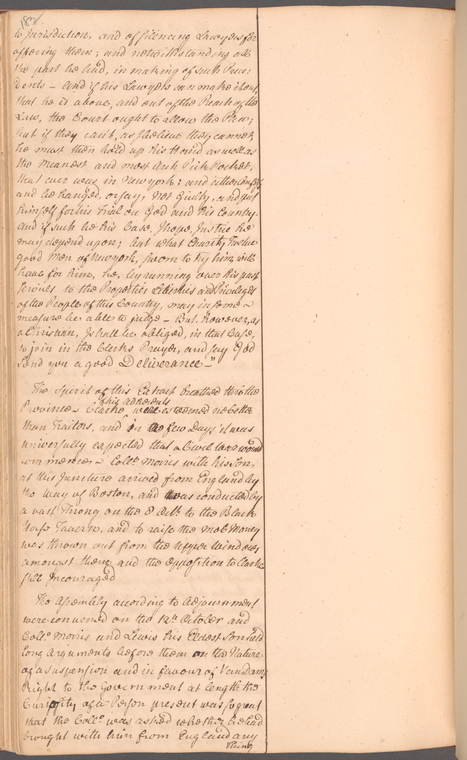 to Jurisdiction, and of silencing Lawyers for
offering them; and notwithstanding all
the part he had, in making of such Prece
dents – And if his Lawyers can make it out,
that he is above, and out of the Reach of the
Law, the Court ought to allow the Plea;
but if they can't, as I believe they cannot,
he must then hold up his Hand as well as
the Meanest and most Arch Pick Pocket,
that ever was in New York; and
and be hanged, or say, Not Guilty, and put
himself for his Trial on God and his Country.
And if such be his Case, I hope, Justice he
may depend upon; but what Charity, Twelve
good Men of New York, sworn to try him, will
have for him, he, by running over his past
Services to the Properties Liberties and Privileges
of the People of this Country, may in some
measure be able to judge – But however, as
a Christian, I shall be obliged, in that Case,
to join in the Clerks Prayer, and say God
send you a good Deliverance –"
The Spirit of this Extract breathed thro the
Province – Clarke, his adherents were esteemed no better
than Traitors, and in a few Days it was
universally expected that a Civil War would
commence – Coll.o Morris with his Son,
at this Juncture arrived from England by
the way of Boston, and was conducted by
a vast Throng on the 8 Oct.r to the Black
Horse Tavern, and to raise the Mob Money
was thrown out from the upper Windows
amongst them and the Opposition to Clarke
still Incouraged
The Assembly according to adjournment
were convened on the 12th October and
Coll.o Morris and Lewis his Eldest Son held
long Arguments before them on the Nature
of a suspension and in favour of Van Dams
Right to the Government at length the
Curiosity of a Person present was so great
that the Coll.o was asked whether he had
brought with him from England any
thing